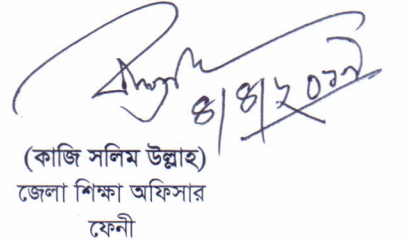 ৪/৪/২০১৭
(কাজি সলিম উল্লাহ)
জেলা শিক্ষা অফিসার
ফেনী